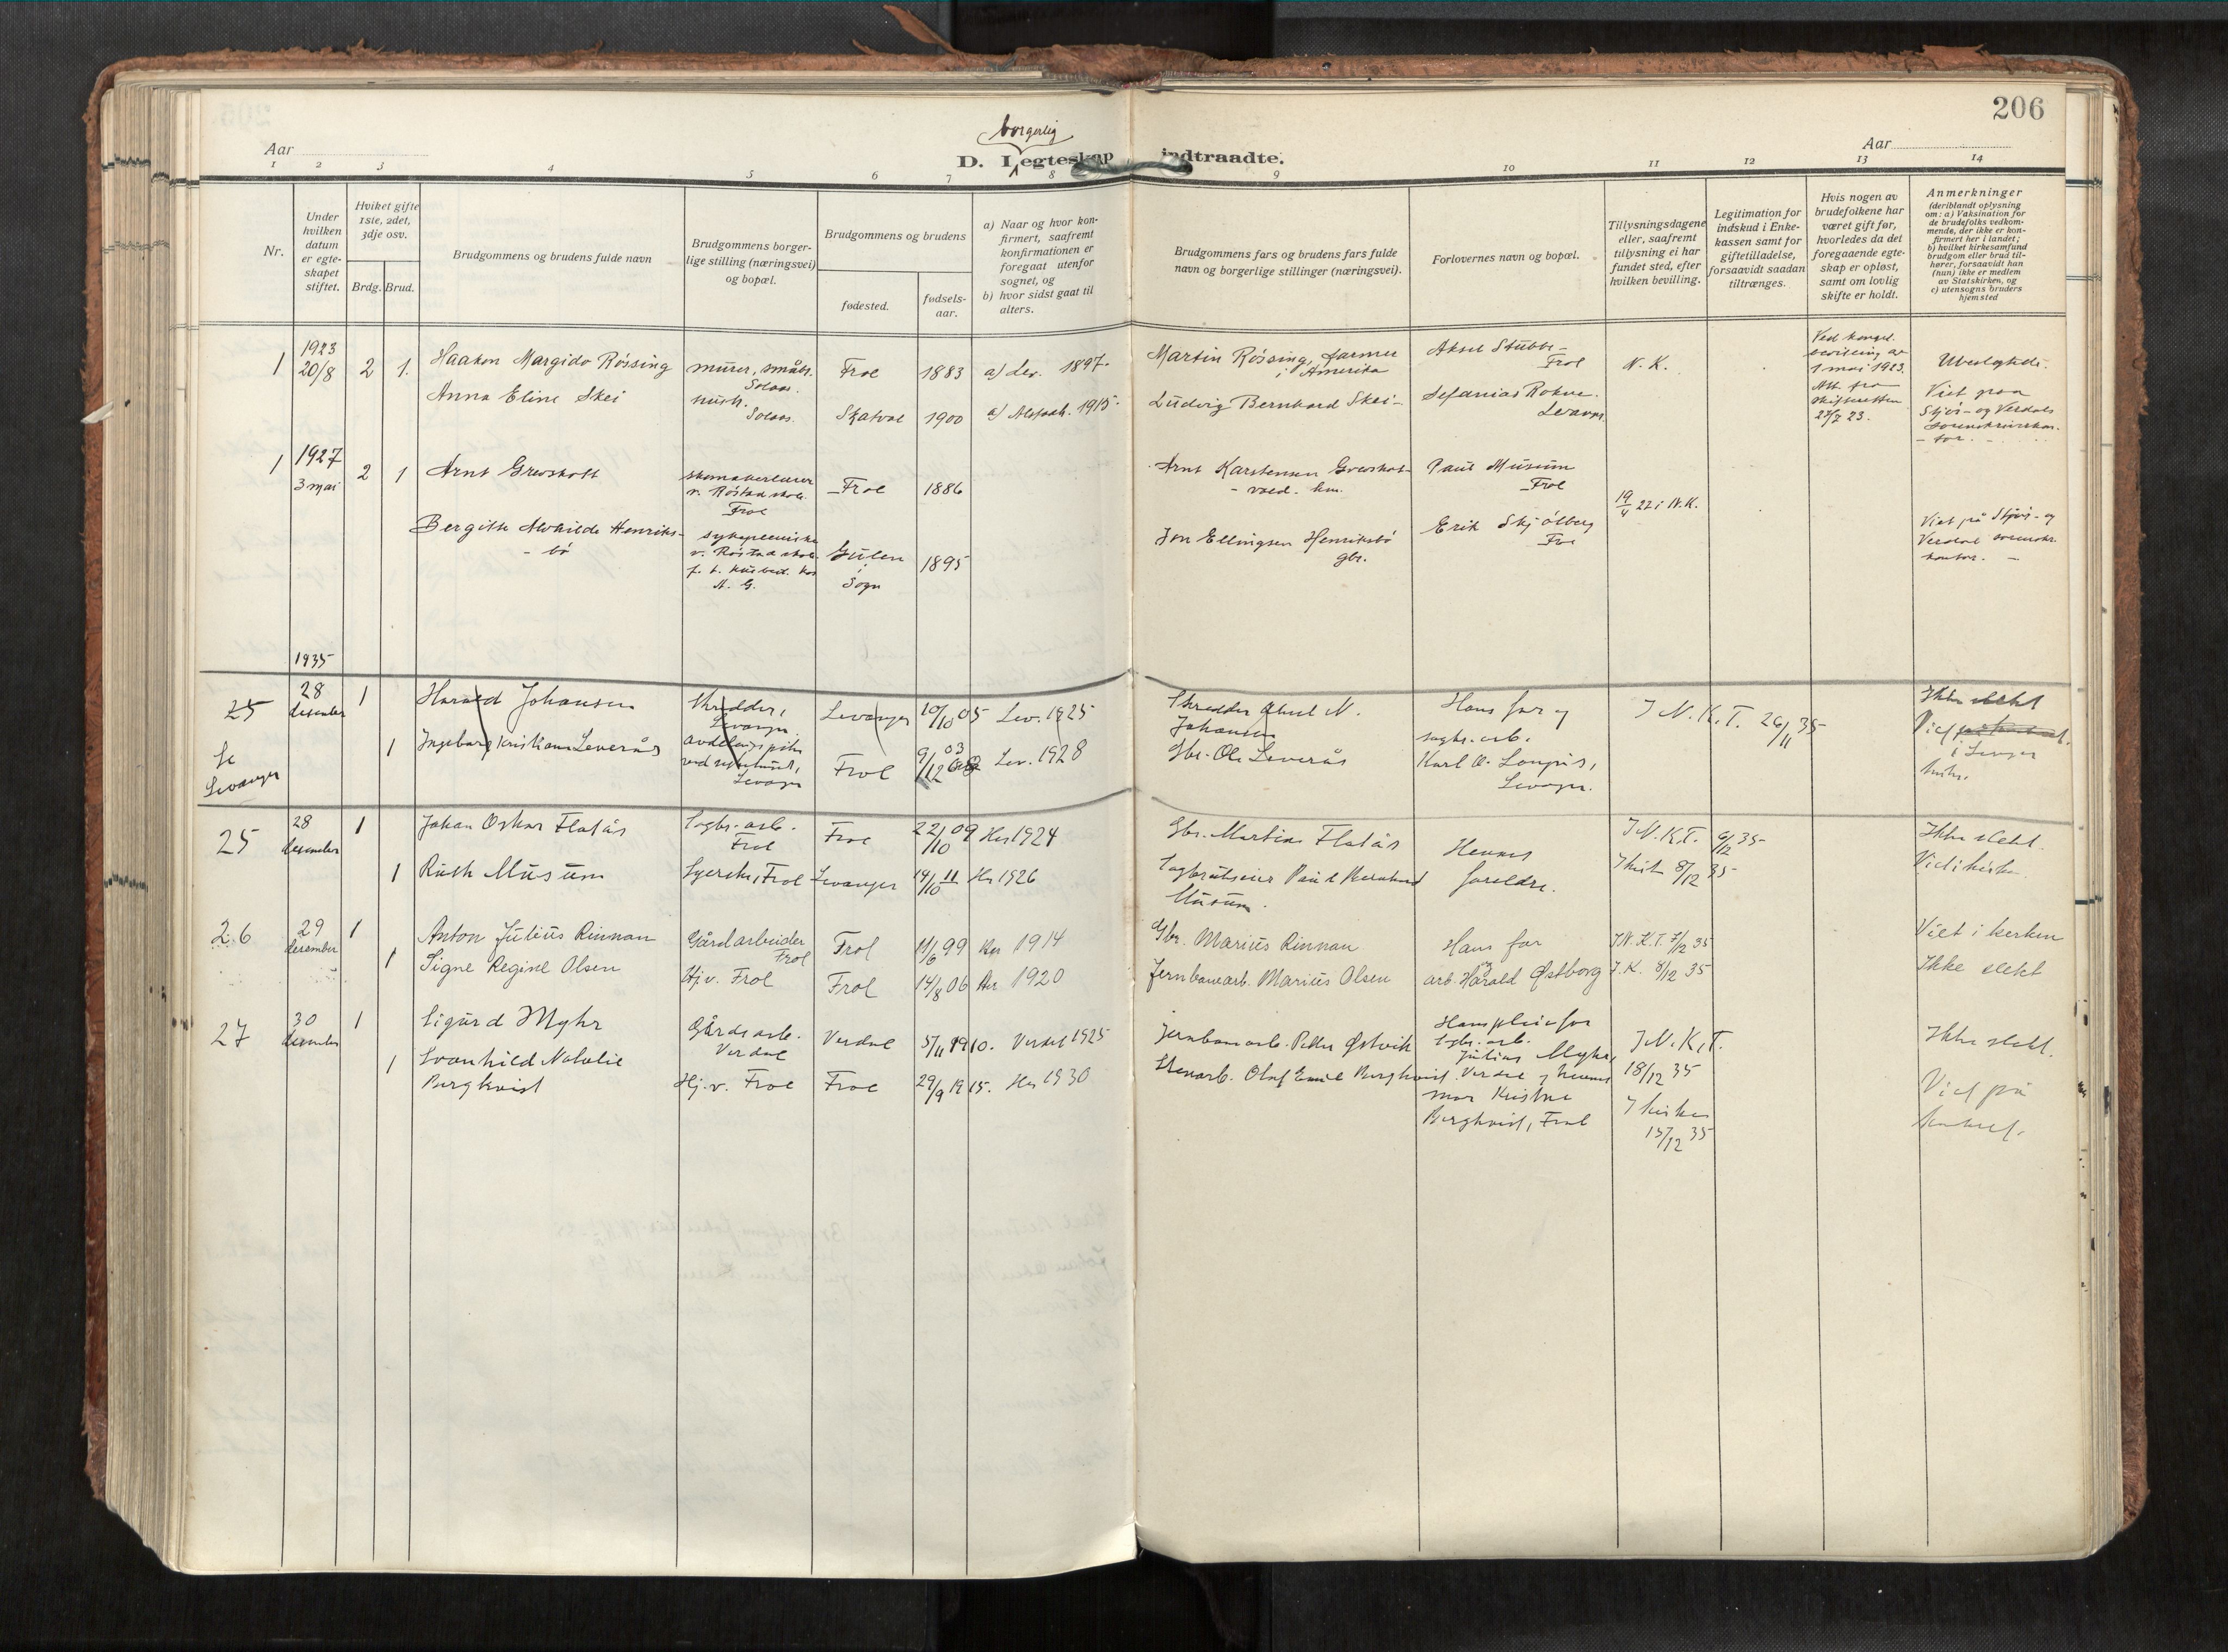 206
borgerlig
Aar
D. Egteskap indtraadte.
Aar
1 2 3 4 5 6 7 8 9 10 11 12 13 14
Nr.
Under hvilken datum er egte-skapet stiftet.
Hvilket gifte 1ste, 2det, 3dje osv.
Brdg.
Brud.
Brudgommens og brudens fulde navn
Brudgommens borger-lige stilling (næringsvei) og bopæl.
Brudgommens og brudens
fødested.
fødsels-aar.
a) Naar og hvor kon-firmert, saafremt konfirmationen er foregaat utenfor sognet, og
b) hvor sidst gaat til alters.
Brudgommens fars og brudens fars fulde navn og borgerlige stillinger (næringsvei).
Forlovernes navn og bopæl.
Tillysningsdagene eller, saafremt tillysning ei har fundet sted, efter hvilken bevilling.
Legitimation for indskud i Enke-kassen samt for giftetilladelse, forsaavidt saadan tiltrænges.
Hvis nogen av brudefolkene har været gift før, hvorledes da det foregaaende egte-skap er opløst, samt om lovlig skifte er holdt.
Anmerkninger (deriblandt oplysning om: a) Vaksination for de brudefolks vedkom-mende, der ikke er kon-firmert her i landet; b) hvilket kirkesamfund brudgom eller brud til-hører, forsaavidt han (hun) ikke er medlem av Statskirken, og c) utensogns bruders hjemsted
1 1923 20/8 2 1. Haakon Margido Røssing murer, småbr. Frol 1883 a) Lev. 1897. Martin Røssing, farmer i Amerika Aksel Stubbe- Frol N. K. Ved kongel. bevilling av 1 mai 1923. Att. fra skifteretten 27/7 23. Ubeslegtede.
Anna Eline Skei Skatval 1900 a) Alstadh. 1915. Ludvig Bernhard Skei- Sefanias Rokne. Levanger Viet paa Stjør- og Verdals sorenskriverkon-tor.
1 1927 3 mai 2 1 Arnt Grevskott skomakerlærer v. Røstad skole Frol Frol 1886 Arnt Karstensen Grevskot- Paul Musum Frol 19/4 27 i N.K.
Bergitte Alvhilde Henriks-bø v. Røstad skole Gulen i Sogn 1895 Jon Ellingsen Henriksbø gbr. Erik Skjølberg Frol Viet på Stjør- og Verdal sorenskr. kontor. -
1935
25 28 desember 1 Harald Johansen Skredder, Levanger Levanger 10/10 05 Lev. 1925 Skredder N. Johansen Hans far og I N.K.T. 26/11 35 Ikke slekt
Se Levanger 1 Ingeborg Kristiane Leverås Levanger Frol 9/12 03 Lev. 1928 Gbr. Ole Leverås sagbr. arb. Karl O. Levanger. Viet i Levanger kirke.
25 28 desember 1 Johan Oskar Flatås Sagbr. arb. Frol Frol 22/10 09 Her 1924 Gbr. Martin Flatås Hennes foreldre. I N.K.T. 6/12 35 Ikke slekt.
1 Ruth Musum Frol Levanger 14/10 11 Her 1926 Sagbrukseier Paul Bernhard Musum. I kirke 8/12 35 Viet i kirke.
26 29 desember 1 Anton Julius Rinnan Gårdarbeider Frol Frol 11/6 99 Her 1914 Gbr. Marius Rinnan Hans far og I N.K.T. 7/12 35 Viet i kirken
1 Signe Regine Olsen Hj.v. Frol Frol 14/8 06 Her 1920 Jernbanearb. Marius Olsen arb. Harald Østborg I.K. 8/12 35 Ikke slekt
27 30 desember 1 Sigurd Myhr Gårdsarb. Verdal Verdal 5/11 1910. Verdal 1925 Jernbanearb. Petter Østvik Hans pleiefar sagbr. arb. Julius Myhr, I N.K.T. 18/12 35 Ikke slekt.
1 Svanhild Natalie Bergkvist Hj.v. Frol Frol 29/9 1915. Her 1930 Stenarb. Olaf Emil Bergkvist. Verdal og hennes mor Kristine Bergkvist, Frol I kirken 15/12 35 Viet på kontoret.